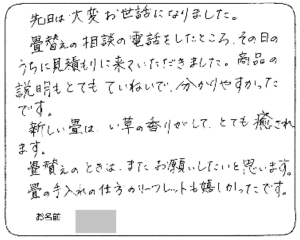 先日は大変お世話になりました。
畳替えの相談の電話をしたところ、その日の
うちに見積もりに来ていただきました。商品の
説明もとてもていねいで、分かりやすかった
です。
新しい畳は、い草の香りがして、とても癒され
ます。
畳替えのときは、またお願いしたいと思います。
畳の手入れの仕方のリーフレットも嬉しかったです。
お名前